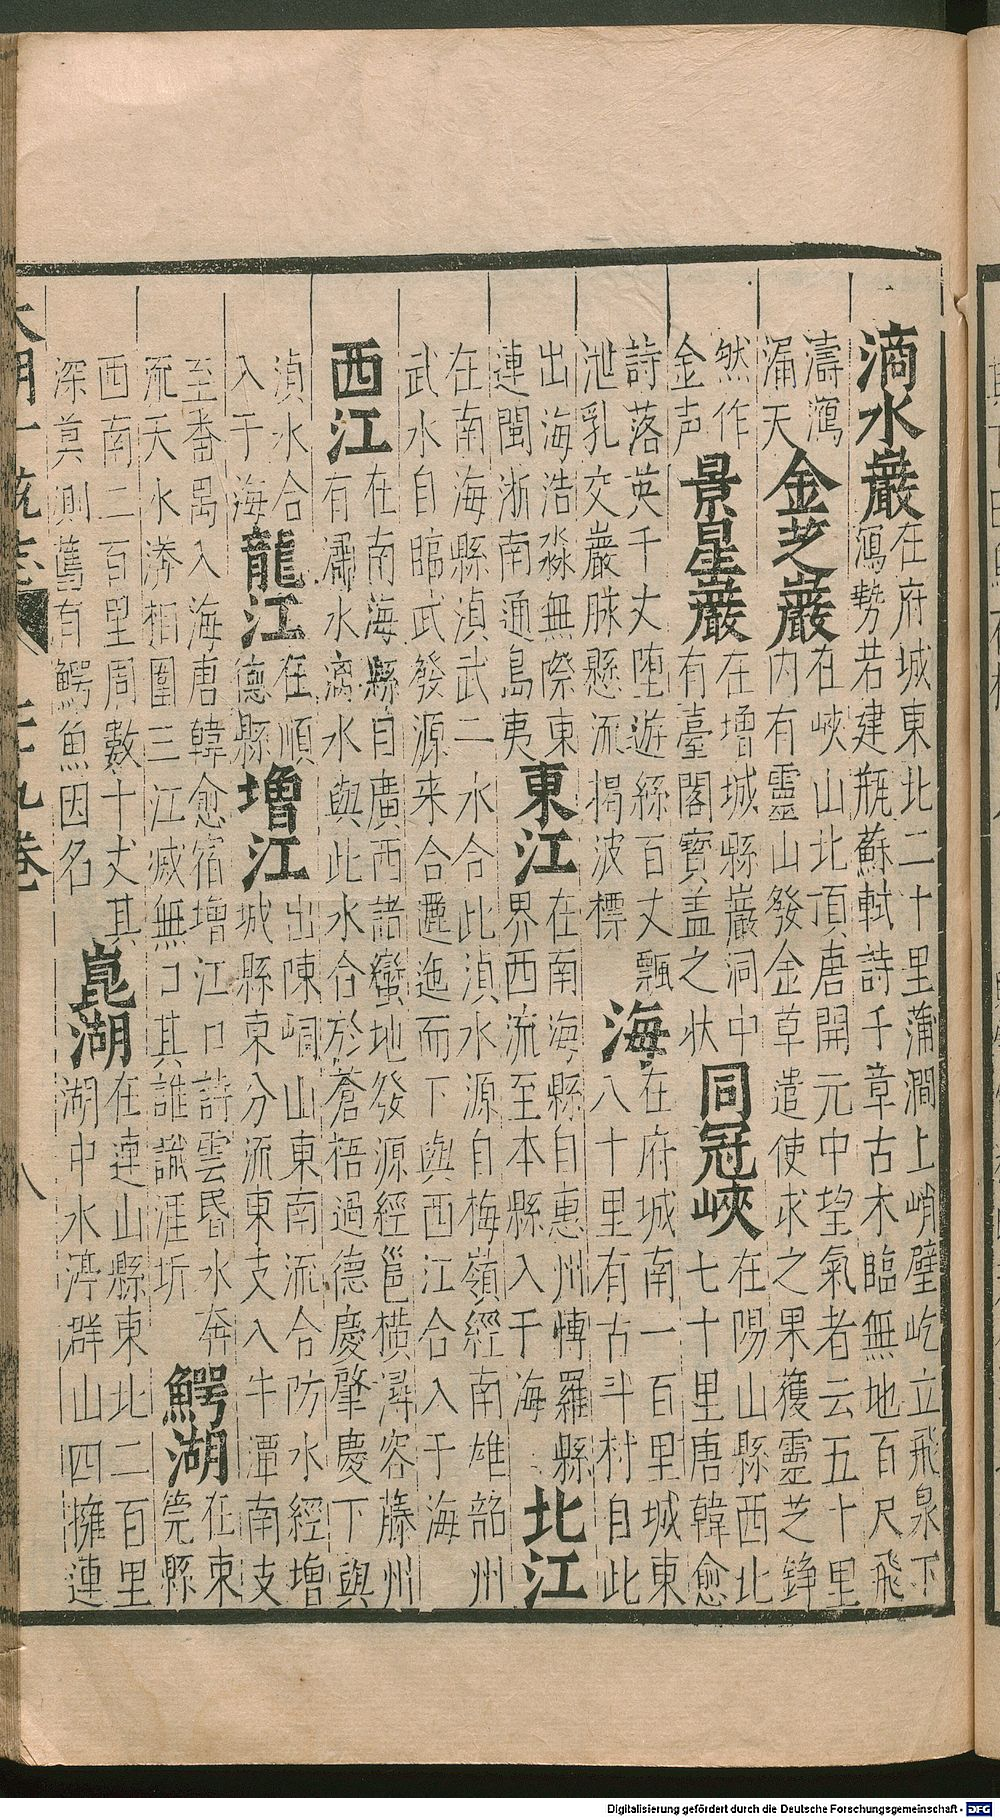 滴水巖在府城東北二十里蒲澗上峭壁屹立飛泉下
瀉勢若建瓶蘇軾詩千章古木臨無地百尺飛
濤瀉
漏天
金芝巖在峽山北頂唐開元中望氣者云五十里
内有靈山發金草遣使求之果獲靈芝錚
然作
金声
景星巖在增城縣巖洞中
有臺閣寳盖之状
同冠峽在陽山縣西北
七十里唐韓愈
詩落英千丈堕遊絲百丈飄
泄乳交巖脉懸流揭波標
海在府城南一百里城東
八十里有古斗村自此
出海浩淼無際東
連閩浙南通島夷
東江在南海縣自惠州博羅縣
界西流至本縣入于海
北江
在南海縣湞武二水合此湞水源自梅嶺經南雄韶州
武水自臨武發源来合邐迤而下與西江合入于海
西江在南海縣自廣西諸蠻地發源經邕横潯容藤州
有瀟水漓水與此水合於蒼梧過德慶肇慶下與
湞水合
入于海
龍江在順
德縣
增江出陳峒山東南流合防水經增
城縣東分流東支入牛潭南支
至畨禺入海唐韓愈宿增江口詩雲昏水奔
流天水漭相圍三江滅無口其誰識涯圻
鰐湖在東
莞縣
西南二百里周數十丈其
深莫測舊有鰐魚因名
崑湖在連山縣東北二百里
湖中水渟群山四擁連
大明一統志 二十九卷 八
Digitalisierung gefördert durch die Deutsche Forschungsgemeinschaft - DFG